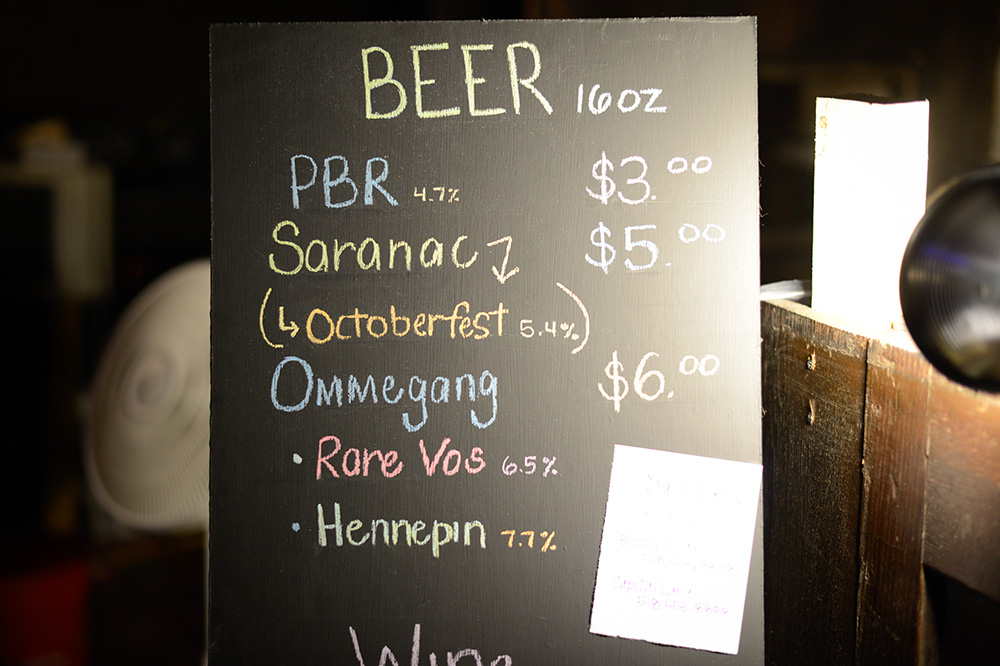 BEER 16oz
PBR 4.7% $3.00
Saranac $5.00
(↳Octoberfest 5.4%)
Ommegang $6.00
• Rare Vos 6.5%
• Hennepin 7.7%
Wine